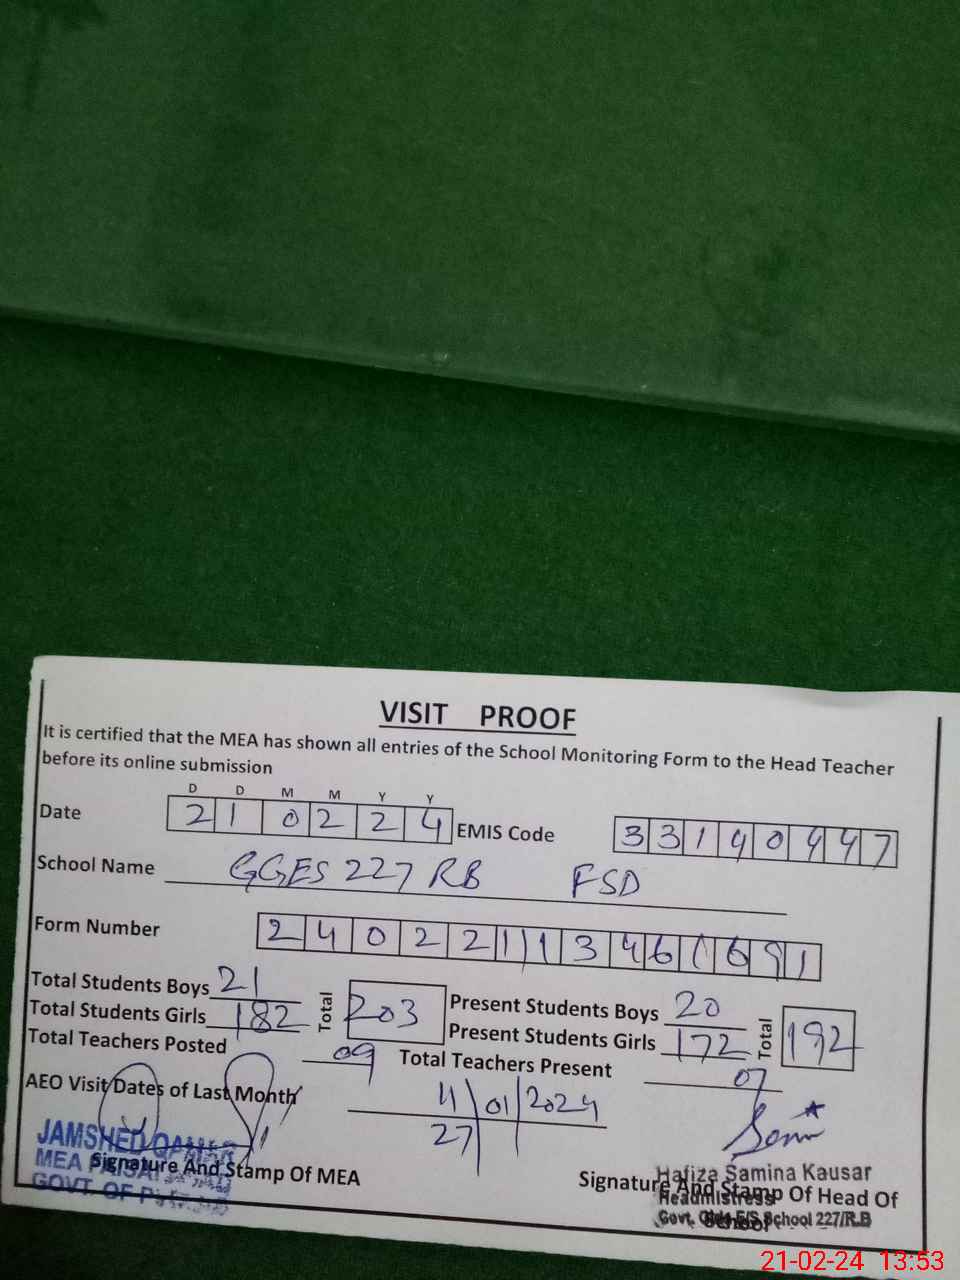 VISIT PROOF
It is certified that the MEA has shown all entries of the School Monitoring Form to the Head Teacher
before its online submission
D D M M Y Y
Date 2 1 0 2 2 4 EMIS Code 3 3 1 4 0 4 4 7
School Name GGES 227 RB FSD
Form Number 2 4 0 2 2 1 1 3 4 6 1 6 9 1
Total Students Boys 21 Total 203 Present Students Boys 20 Total 192
Total Students Girls 182 Present Students Girls 172
Total Teachers Posted 09 Total Teachers Present 07
AEO Visit Dates of Last Month 11 01 2024
27
JAMSHED QAMAR
MEA FAISAL
GOVT. OF
Signature And Stamp Of MEA
Signature And Stamp Of Head Of
School
Hafiza Samina Kausar
Headmistress
Govt. Girls E/S School 227/R.B
21-02-24 13:53